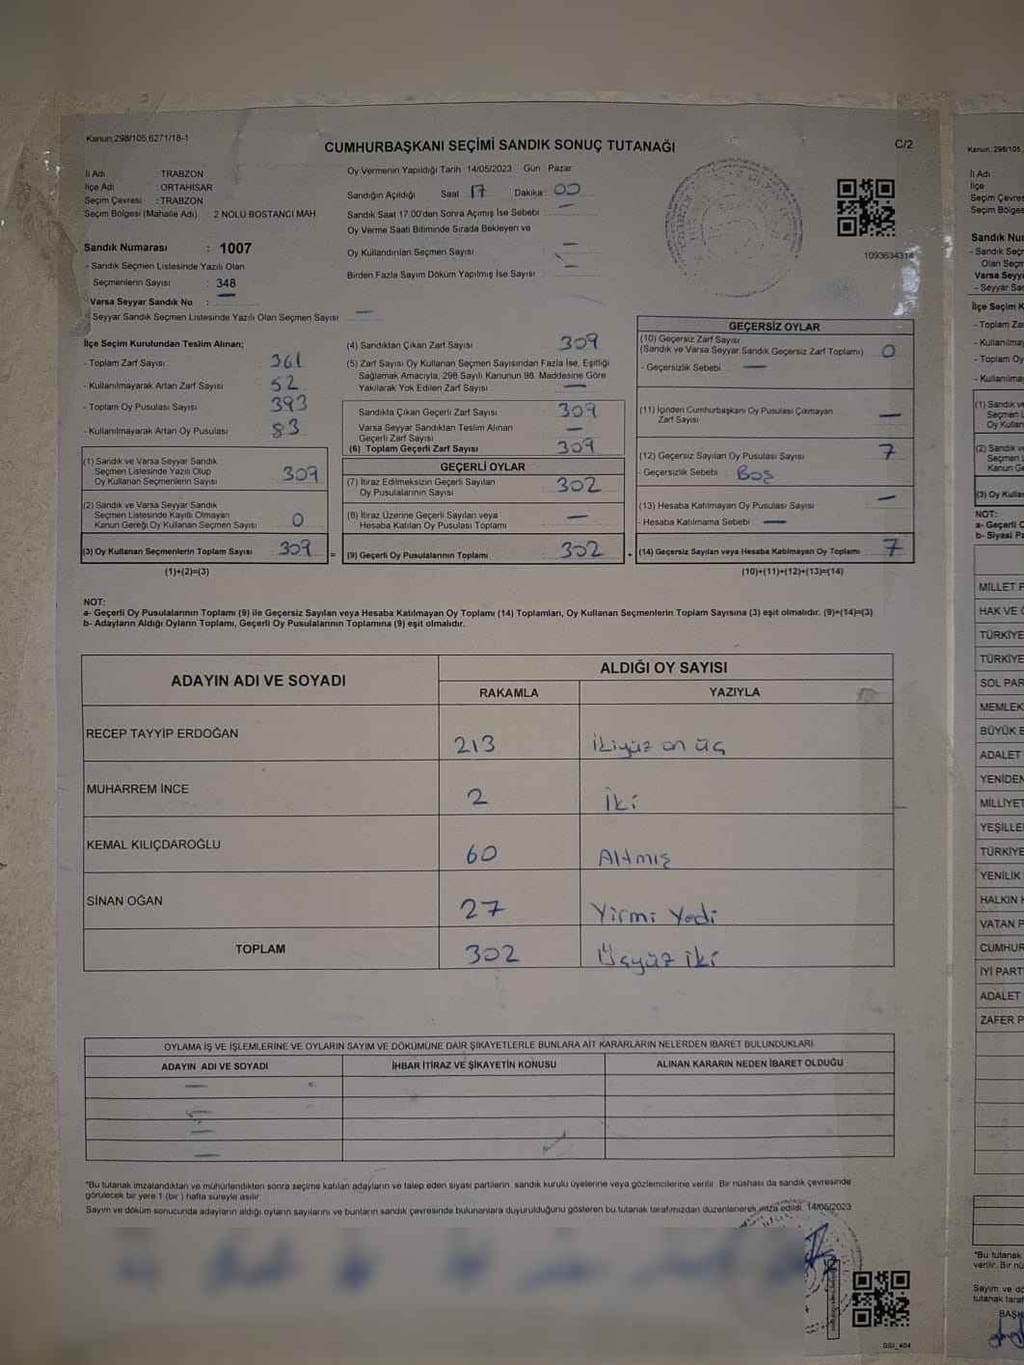 Kanun:298/105,6271/18-1
CUMHURBAŞKANI SEÇİMİ SANDIK SONUÇ TUTANAĞI
C/2
İl Adı : TRABZON
İlçe Adı : ORTAHİSAR
Seçim Çevresi : TRABZON
Seçim Bölgesi (Mahalle Adı) 2 NOLU BOSTANCI MAH.
Oy Vermenin Yapıldığı Tarih 14/05/2023 Gün Pazar
Sandığın Açıldığı Saat 17 Dakika 00
Sandık Saat 17.00'den Sonra Açımış İse Sebebi
Oy Verme Saati Bitiminde Sırada Bekleyen ve
Oy Kullandırılan Seçmen Sayısı —
Birden Fazla Sayım Döküm Yapılmış İse Sayısı —
1093634314
Sandık Numarası : 1007
- Sandık Seçmen Listesinde Yazılı Olan
Seçmenlerin Sayısı : 348
Varsa Seyyar Sandık No : —
Seyyar Sandık Seçmen Listesinde Yazılı Olan Seçmen Sayısı —
İlçe Seçim Kurulundan Teslim Alınan;
- Toplam Zarf Sayısı 361
- Kullanılmayarak Artan Zarf Sayısı 52
- Toplam Oy Pusulası Sayısı 393
- Kullanılmayarak Artan Oy Pusulası 83
(1) Sandık ve Varsa Seyyar Sandık
Seçmen Listesinde Yazılı Olup
Oy Kullanan Seçmenlerin Sayısı 309
(2) Sandık ve Varsa Seyyar Sandık
Seçmen Listesinde Kayıtlı Olmayan
Kanun Gereği Oy Kullanan Seçmen Sayısı 0
(3) Oy Kullanan Seçmenlerin Toplam Sayısı 309 =
(1)+(2)=(3)
(4) Sandıktan Çıkan Zarf Sayısı 309
(5) Zarf Sayısı Oy Kullanan Seçmen Sayısından Fazla İse, Eşitliği
Sağlamak Amacıyla, 298 Sayılı Kanunun 98. Maddesine Göre
Yakılarak Yok Edilen Zarf Sayısı —
Sandıkta Çıkan Geçerli Zarf Sayısı 309
Varsa Seyyar Sandıktan Teslim Alınan
Geçerli Zarf Sayısı —
(6) Toplam Geçerli Zarf Sayısı 309
GEÇERLİ OYLAR
(7) İtiraz Edilmeksizin Geçerli Sayılan
Oy Pusulalarının Sayısı 302
(8) İtiraz Üzerine Geçerli Sayılan veya
Hesaba Katılan Oy Pusulası Toplamı —
(9) Geçerli Oy Pusulalarının Toplamı 302 +
GEÇERSİZ OYLAR
(10) Geçersiz Zarf Sayısı
(Sandık ve Varsa Seyyar Sandık Geçersiz Zarf Toplamı) 0
- Geçersizlik Sebebi —
(11) İçinden Cumhurbaşkanı Oy Pusulası Çıkmayan
Zarf Sayısı —
(12) Geçersiz Sayılan Oy Pusulası Sayısı 7
- Geçersizlik Sebebi Boş
(13) Hesaba Katılmayan Oy Pusulası Sayısı —
- Hesaba Katılmama Sebebi —
(14) Geçersiz Sayılan veya Hesaba Katılmayan Oy Toplamı 7
(10)+(11)+(12)+(13)=(14)
NOT:
a- Geçerli Oy Pusulalarının Toplamı (9) ile Geçersiz Sayılan veya Hesaba Katılmayan Oy Toplamı (14) Toplamları, Oy Kullanan Seçmenlerin Toplam Sayısına (3) eşit olmalıdır. (9)+(14)=(3)
b- Adayların Aldığı Oyların Toplamı, Geçerli Oy Pusulalarının Toplamına (9) eşit olmalıdır.
ADAYIN ADI VE SOYADI
ALDIĞI OY SAYISI
RAKAMLA YAZIYLA
RECEP TAYYİP ERDOĞAN 213 İkiyüz on üç
MUHARREM İNCE 2 İki
KEMAL KILIÇDAROĞLU 60 Altmış
SİNAN OĞAN 27 Yirmi Yedi
TOPLAM 302 Üçyüz iki
OYLAMA İŞ VE İŞLEMLERİNE VE OYLARIN SAYIM VE DÖKÜMÜNE DAİR ŞİKAYETLERLE BUNLARA AİT KARARLARIN NELERDEN İBARET BULUNDUKLARI
ADAYIN ADI VE SOYADI İHBAR İTİRAZ VE ŞİKAYETİN KONUSU ALINAN KARARIN NEDEN İBARET OLDUĞU
*Bu tutanak imzalandıktan ve mühürlendikten sonra seçime katılan adayların ve talep eden siyasi partilerin sandık kurulu üyelerine veya gözlemcilerine verilir. Bir nüshası da sandık çevresinde
görülecek bir yere 1 (bir) hafta süreyle asılır.
Sayım ve döküm sonucunda adayların aldığı oyların sayılarını ve bunların sandık çevresinde bulunanlara duyurulduğunu gösteren bu tutanak tarafımızdan düzenlenerek imza edildi. 14/05/2023
Kanun: 298/105
İl Adı
İlçe
Seçim Çevres
Seçim Bölges
Sandık Nu
Varsa Seyy
İlçe Seçim K
- Toplam Za
- Kullanılma
- Toplam Oy
- Kullanılma
(1) Sandık ve
Oy Kullan
(2) Sandık v
(3) Oy Kulla
NOT:
a- Geçerli O
b- Siyasi Pa
MİLLET P
HAK VE
TÜRKİYE
TÜRKİYE
SOL PAR
MEMLEK
BÜYÜK B
ADALET
YENİDEN
MİLLİYET
YEŞİLLE
TÜRKİYE
YENİLİK
HALKIN
VATAN P
CUMHUR
İYİ PART
ADALET
ZAFER P
*Bu tutanak
verilir. Bir nü
Sayım ve dö
tutanak taraf
BAŞK